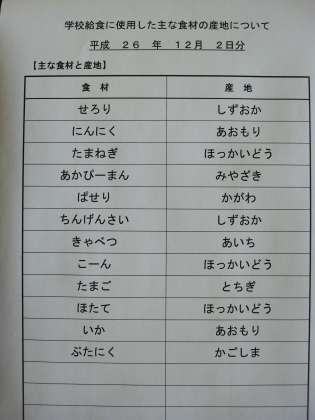 学校給食に使用した主な食材の産地について
平成 26 年 12月 2日分
【主な食材と産地】
食 材 産 地
せろり しずおか
にんにく あおもり
たまねぎ ほっかいどう
あかぴーまん みやざき
ぱせり かがわ
ちんげんさい しずおか
きゃべつ あいち
こーん ほっかいどう
たまご とちぎ
ほたて ほっかいどう
いか あおもり
ぶたにく かごしま